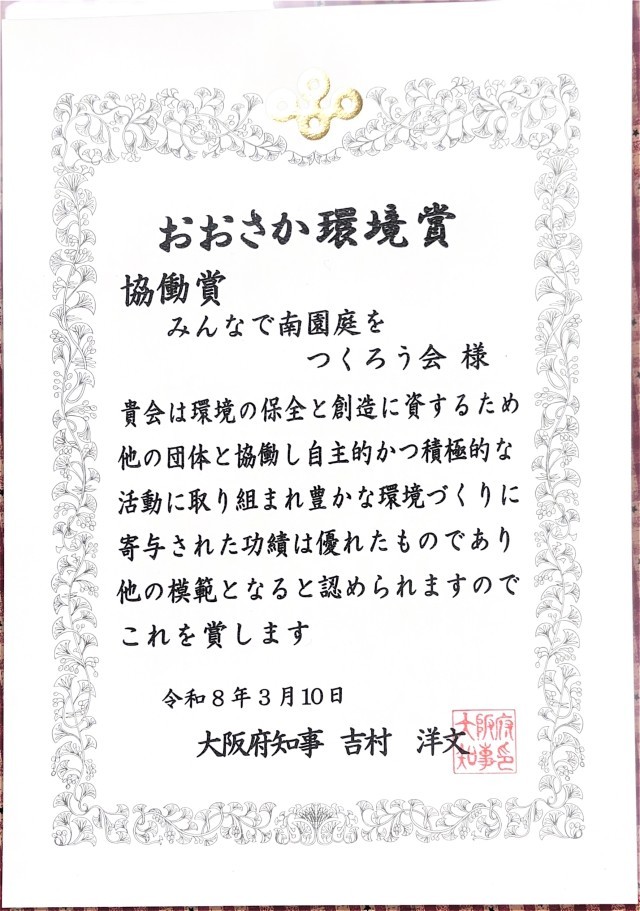 おおさか環境賞
協働賞
みんなで南園庭を
つくろう会 様
貴会は環境の保全と創造に資するため
他の団体と協働し自主的かつ積極的な
活動に取り組まれ豊かな環境づくりに
寄与された功績は優れたものであり
他の模範となると認められますので
これを賞します
令和8年3月10日
大阪府知事 吉村 洋文
大阪府
知事印